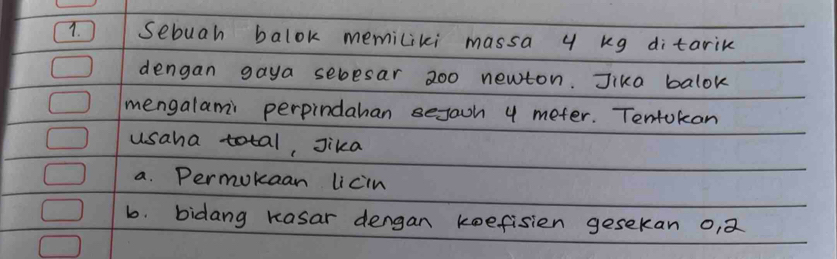 1. Sebuah balok memiliki massa 4 kg ditarik
dengan gaya sebesar 200 newton. Jika balok
mengalami perpindahan sejauh 4 meter. Tentukan
usaha total, Jika
a. Permukaan licin
b. bidang kasar dengan koefisien gesekan 0,2